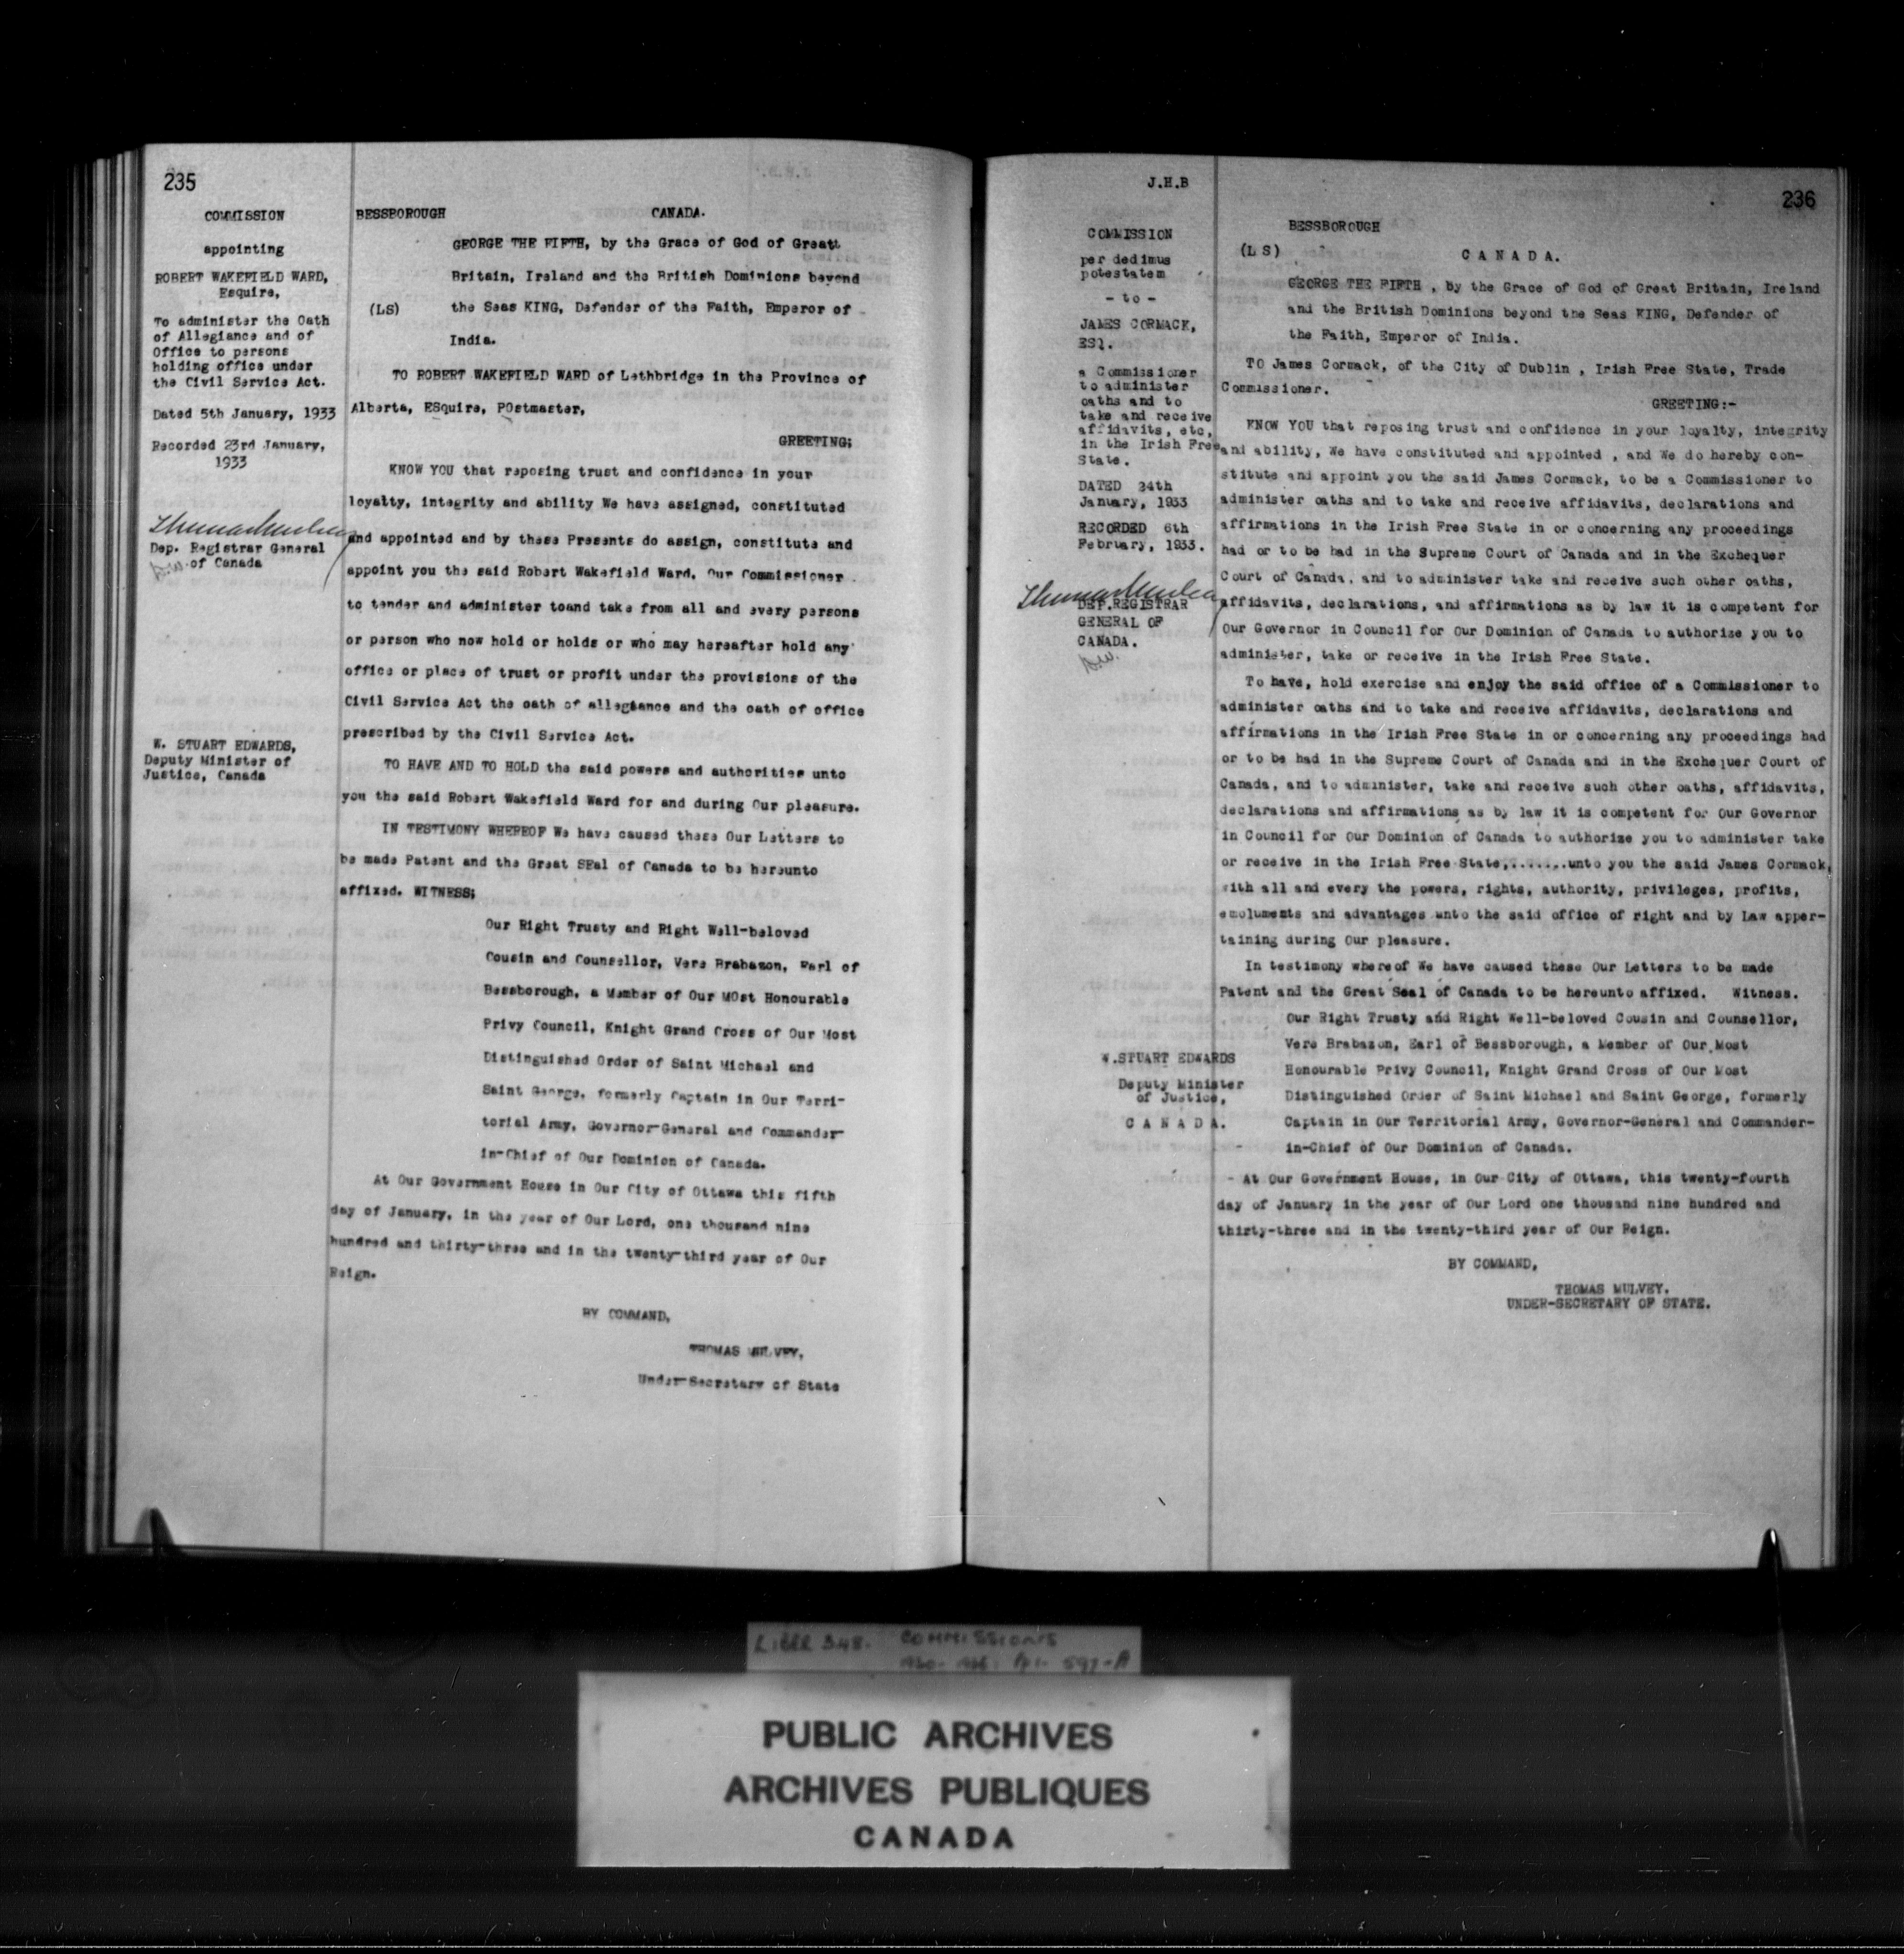 235
COMMISSION
appointing
ROBERT WAKEFIELD WARD,
Esquire,
To administer the Oath
of Allegiance and of
Office to persons
holding office under
the Civil Service Act.
Dated 5th January, 1933
Recorded 23rd January,
1933
Dep. Registrar General
of Canada
W. STUART EDWARDS,
Deputy Minister of
Justice, Canada
BESSBOROUGH CANADA.
GEORGE THE FIFTH, by the Grace of God of Greatt
Britain, Ireland and the British Dominions beyond
(LS) the Seas KING, Defender of the Faith, Emperor of
India.
TO ROBERT WAKEFIELD WARD of Lethbridge in the Province of
Alberta, ESquire, POstmaster,
GREETING;
KNOW YOU that reposing trust and confidence in your
loyalty, integrity and ability We have assigned, constituted
and appointed and by these Presents do assign, constitute and
appoint you the said Robert Wakefield Ward, Our Commissioner
to tender and administer toand take from all and every persons
or person who now hold or holds or who may hereafter hold any
office or place of trust or profit under the provisions of the
Civil Service Act the oath of allegiance and the oath of office
prescribed by the Civil Service Act.
TO HAVE AND TO HOLD the said powers and authorities unto
you the said Robert Wakefield Ward for and during Our pleasure.
IN TESTIMONY WHEREOF We have caused these Our Letters to
be made Patent and the Great SEal of Canada to be hereunto
affixed. WITNESS;
Our Right Trusty and Right Well-beloved
Cousin and Counsellor, Vere Brabazon, Earl of
Bessborough, a Member of Our MOst Honourable
Privy Council, Knight Grand Cross of Our Most
Distinguished Order of Saint Michael and
Saint George, formerly Captain in Our Terri-
torial Army, Governor-General and Commander-
in-Chief of Our Dominion of Canada.
At Our Government House in Our City of Ottawa this fifth
day of January, in the year of Our Lord, one thousand nine
hundred and thirty-three and in the twenty-third year of Our
Reign.
BY COMMAND,
THOMAS MULVEY,
Under-Secretary of State
J.H.B
236
COMMISSION
per dedimus
potestatem
- to -
JAMES CORMACK,
ESQ.
a Commissioner
to administer
oaths and to
take and receive
affidavits, etc,
in the Irish Free
State.
DATED 24th
January, 1933
RECORDED 6th
February, 1933.
DEP.REGISTRAR
GENERAL OF
CANADA.
W.STUART EDWARDS
Deputy Minister
of Justice,
C A N A D A.
BESSBOROUGH
(L S) C A N A D A.
GEORGE THE FIFTH , by the Grace of God of Great Britain, Ireland
and the British Dominions beyond the Seas KING, Defender of
the Faith, Emperor of India.
TO James Cormack, of the City of Dublin , Irish Free State, Trade
Commissioner.
GREETING:-
KNOW YOU that reposing trust and confidence in your loyalty, integrity
and ability, We have constituted and appointed , and We do hereby con-
stitute and appoint you the said James Cormack, to be a Commissioner to
administer oaths and to take and receive affidavits, declarations and
affirmations in the Irish Free State in or concerning any proceedings
had or to be had in the Supreme Court of Canada and in the Exchequer
Court of Canada, and to administer take and receive such other oaths,
affidavits, declarations, and affirmations as by law it is competent for
Our Governor in Council for Our Dominion of Canada to authorize you to
administer, take or receive in the Irish Free State.
To have, hold exercise and enjoy the said office of a Commissioner to
administer oaths and to take and receive affidavits, declarations and
affirmations in the Irish Free State in or concerning any proceedings had
or to be had in the Supreme Court of Canada and in the Exchequer Court of
Canada, and to administer, take and receive such other oaths, affidavits,
declarations and affirmations as by law it is competent for Our Governor
in Council for Our Dominion of Canada to authorize you to administer take
or receive in the Irish Free State,.......unto you the said James Cormack,
with all and every the powers, rights, authority, privileges, profits,
emoluments and advantages unto the said office of right and by Law apper-
taining during Our pleasure.
In testimony whereof We have caused these Our Letters to be made
Patent and the Great Seal of Canada to be hereunto affixed. Witness.
Our Right Trusty and Right Well-beloved Cousin and Counsellor,
Vere Brabazon, Earl of Bessborough, a Member of Our Most
Honourable Privy Council, Knight Grand Cross of Our Most
Distinguished Order of Saint Michael and Saint George, formerly
Captain in Our Territorial Army, Governor-General and Commander-
in-Chief of Our Dominion of Canada.
- At Our Government House, in Our City of Ottawa, this twenty-fourth
day of January in the year of Our Lord one thousand nine hundred and
thirty-three and in the twenty-third year of Our Reign.
BY COMMAND,
THOMAS MULVEY.
UNDER-SECRETARY OF STATE.
LIBER 348. COMMISSIONS
PUBLIC ARCHIVES
ARCHIVES PUBLIQUES
CANADA